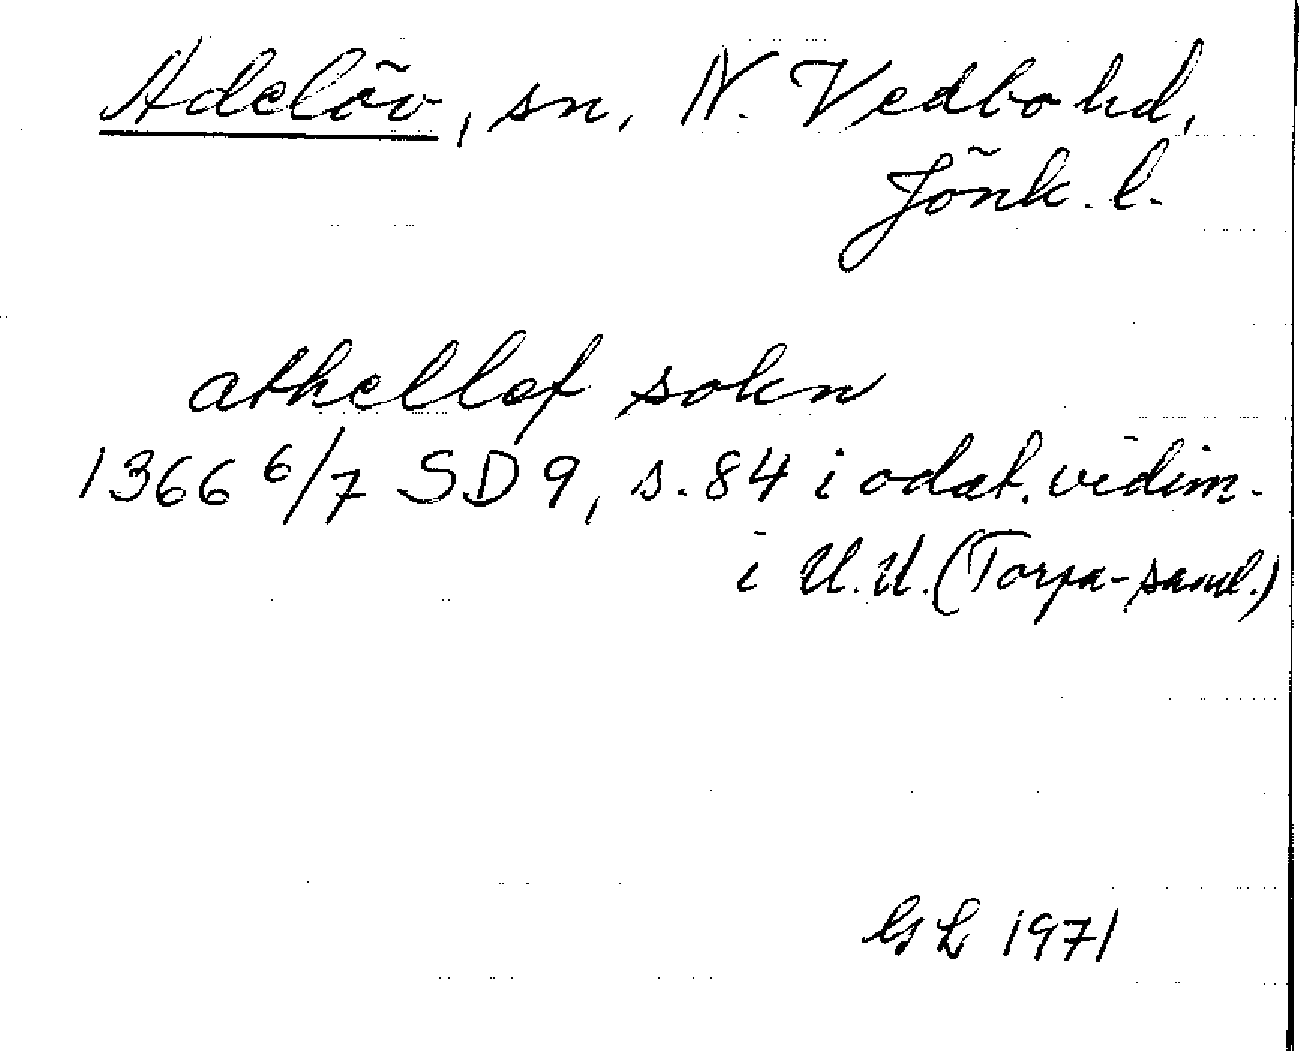 Adelöv, sn, N. Vedbo hd,
Jönk. l.
athelløf sokn
1366 6/7 SD 9, s. 84 i odat. vidim.
i U.U. (Torpa-saml.)
GL 1971